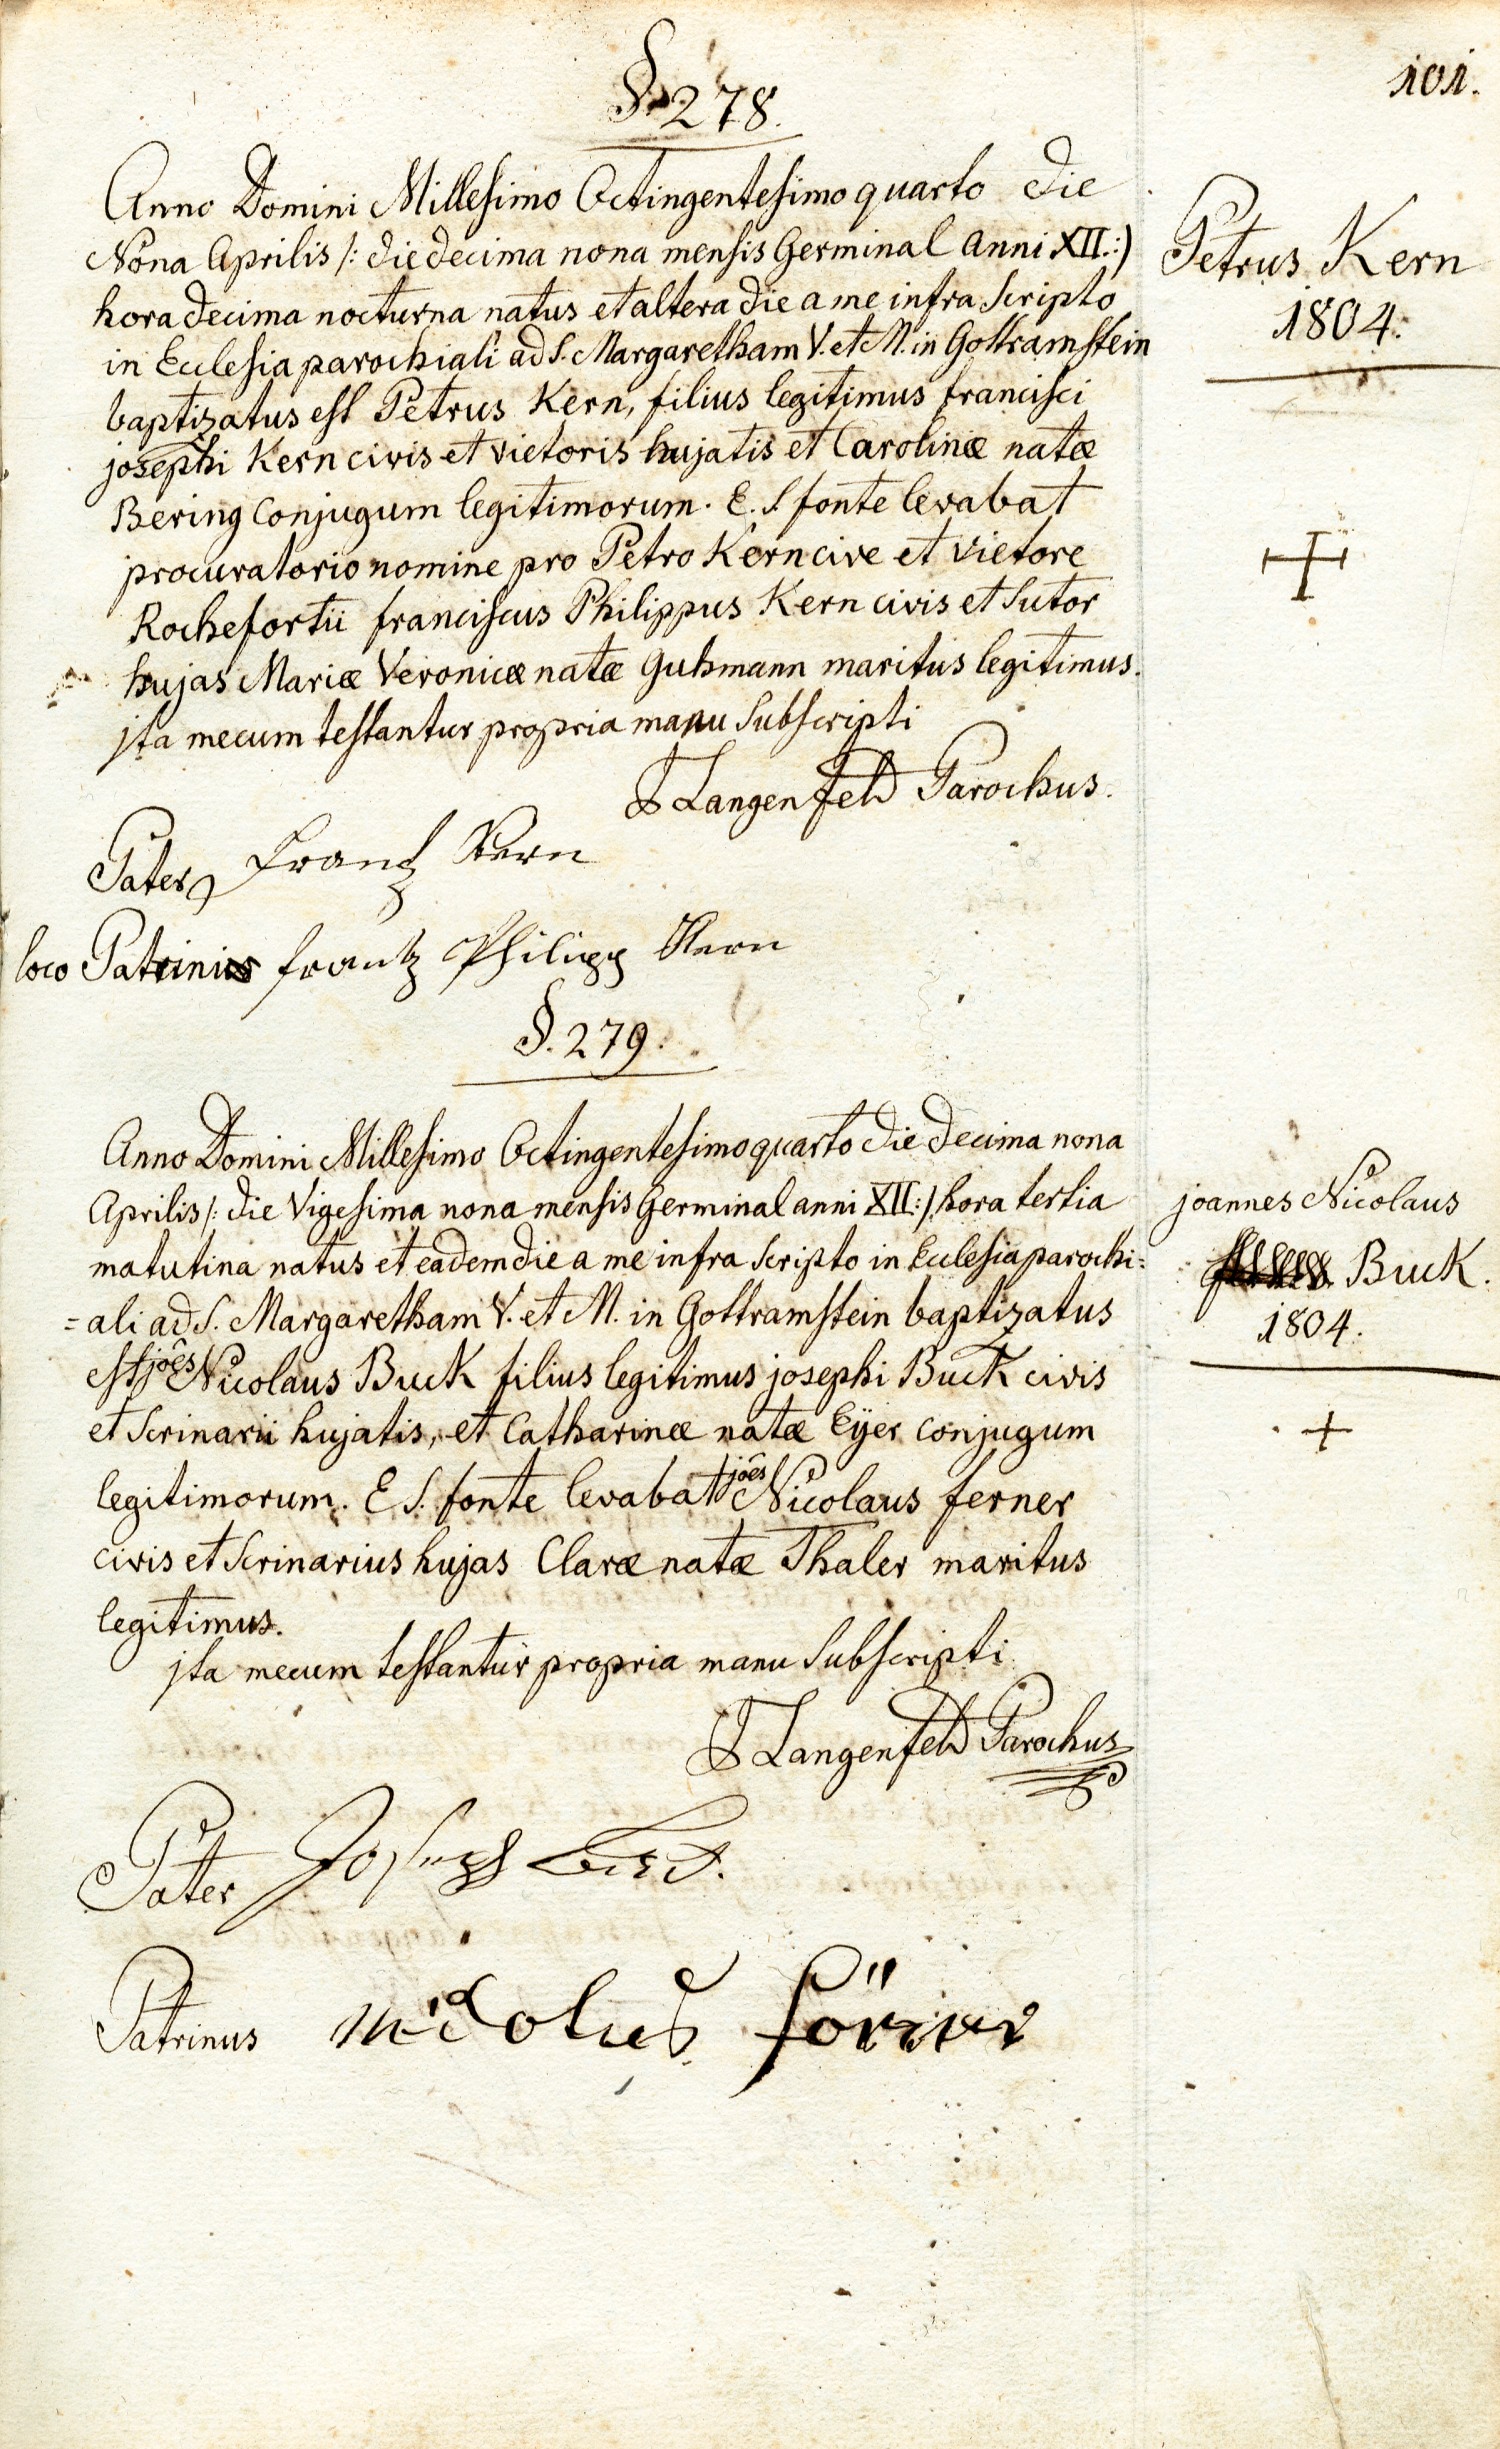 101.
§. 278.
Anno Domini Millesimo Octingentesimo quarto die
Nona Aprilis /: die decima nona mensis Germinal Anni XII. :/
hora decima nocturna natus et altera die a me infra scripto
in Ecclesia parochiali ad S. Margaretham V. et M. in Gottramstein
baptizatus est Petrus Kern, filius legitimus francisci
josephi Kern civis et vietoris hujatis et Carolinæ natæ
Bering Conjugum legitimorum. E. S. fonte levabat
procuratorio nomine pro Petro Kern cive et vietore
Rochefortii franciscus Philippus Kern civis et Sutor
hujas Mariæ Veronicæ natæ Guhmann maritus legitimus.
jta mecum testantur propria manu Subscripti
Petrus Kern
1804.
Langenfeld Parochus.
Pater Frantz Kern
loco Patrini frantz Philipp Kern
§. 279.
Anno Domini Millesimo Octingentesimo quarto die decima nona
Aprilis /: die Vigesima nona mensis Germinal anni XII :/ hora tertia
matutina natus et eadem die a me infra scripto in Ecclesia parochi=
=ali ad S. Margaretham V. et M. in Gottramstein baptizatus
est jôes Nicolaus Buck filius legitimus josephi Buck civis
et Scrinarii hujatis, et Catharinæ natæ Eÿer conjugum
legitimorum. E S. fonte levabat jôes Nicolaus ferner
civis et Scrinarius hujas Claræ natæ Thaler maritus
legitimus.
jta mecum testantur propria manu Subscripti
joannes Nicolaus
Buck.
1804.
Langenfeld Parochus
Pater Joseph
Patrinus